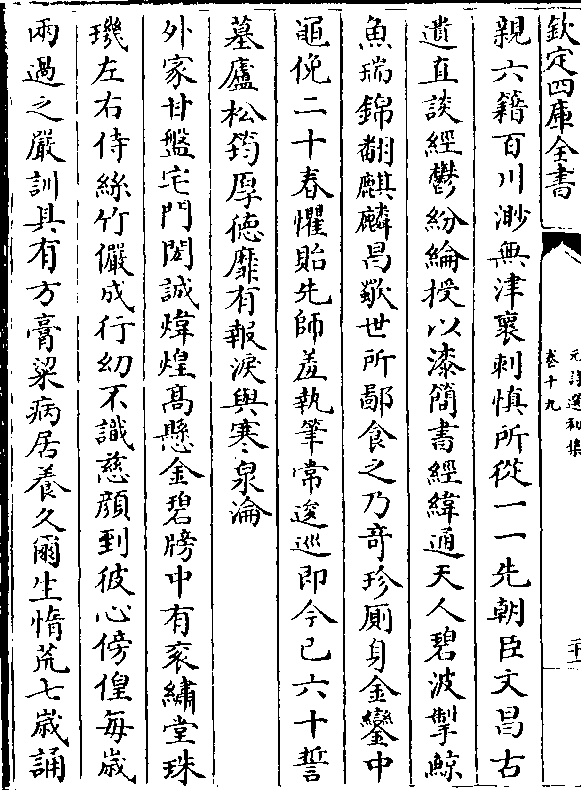 欽定四庫全書
元詩選初集
卷十九
親六籍百川渺無津裹刺慎所從一一先朝臣文昌古
遺直談經鬱紛綸授以漆簡書經緯通天人碧波掣鯨
魚瑞錦翻麒麟昌歜世所鄙食之乃奇珍厠身金鑾中
黽俛二十春懼貽先師羞執筆常逡巡即今已六十誓
墓廬松筠厚德靡有報淚與寒泉淪
外家甘盤宅門閥誠煒煌高懸金碧牓中有衮繡堂珠
璣左右侍絲竹儼成行幼不識慈顔到彼心傍偟每歳
兩過之嚴訓具有方膏粱病居養久爾生惰荒七歳誦